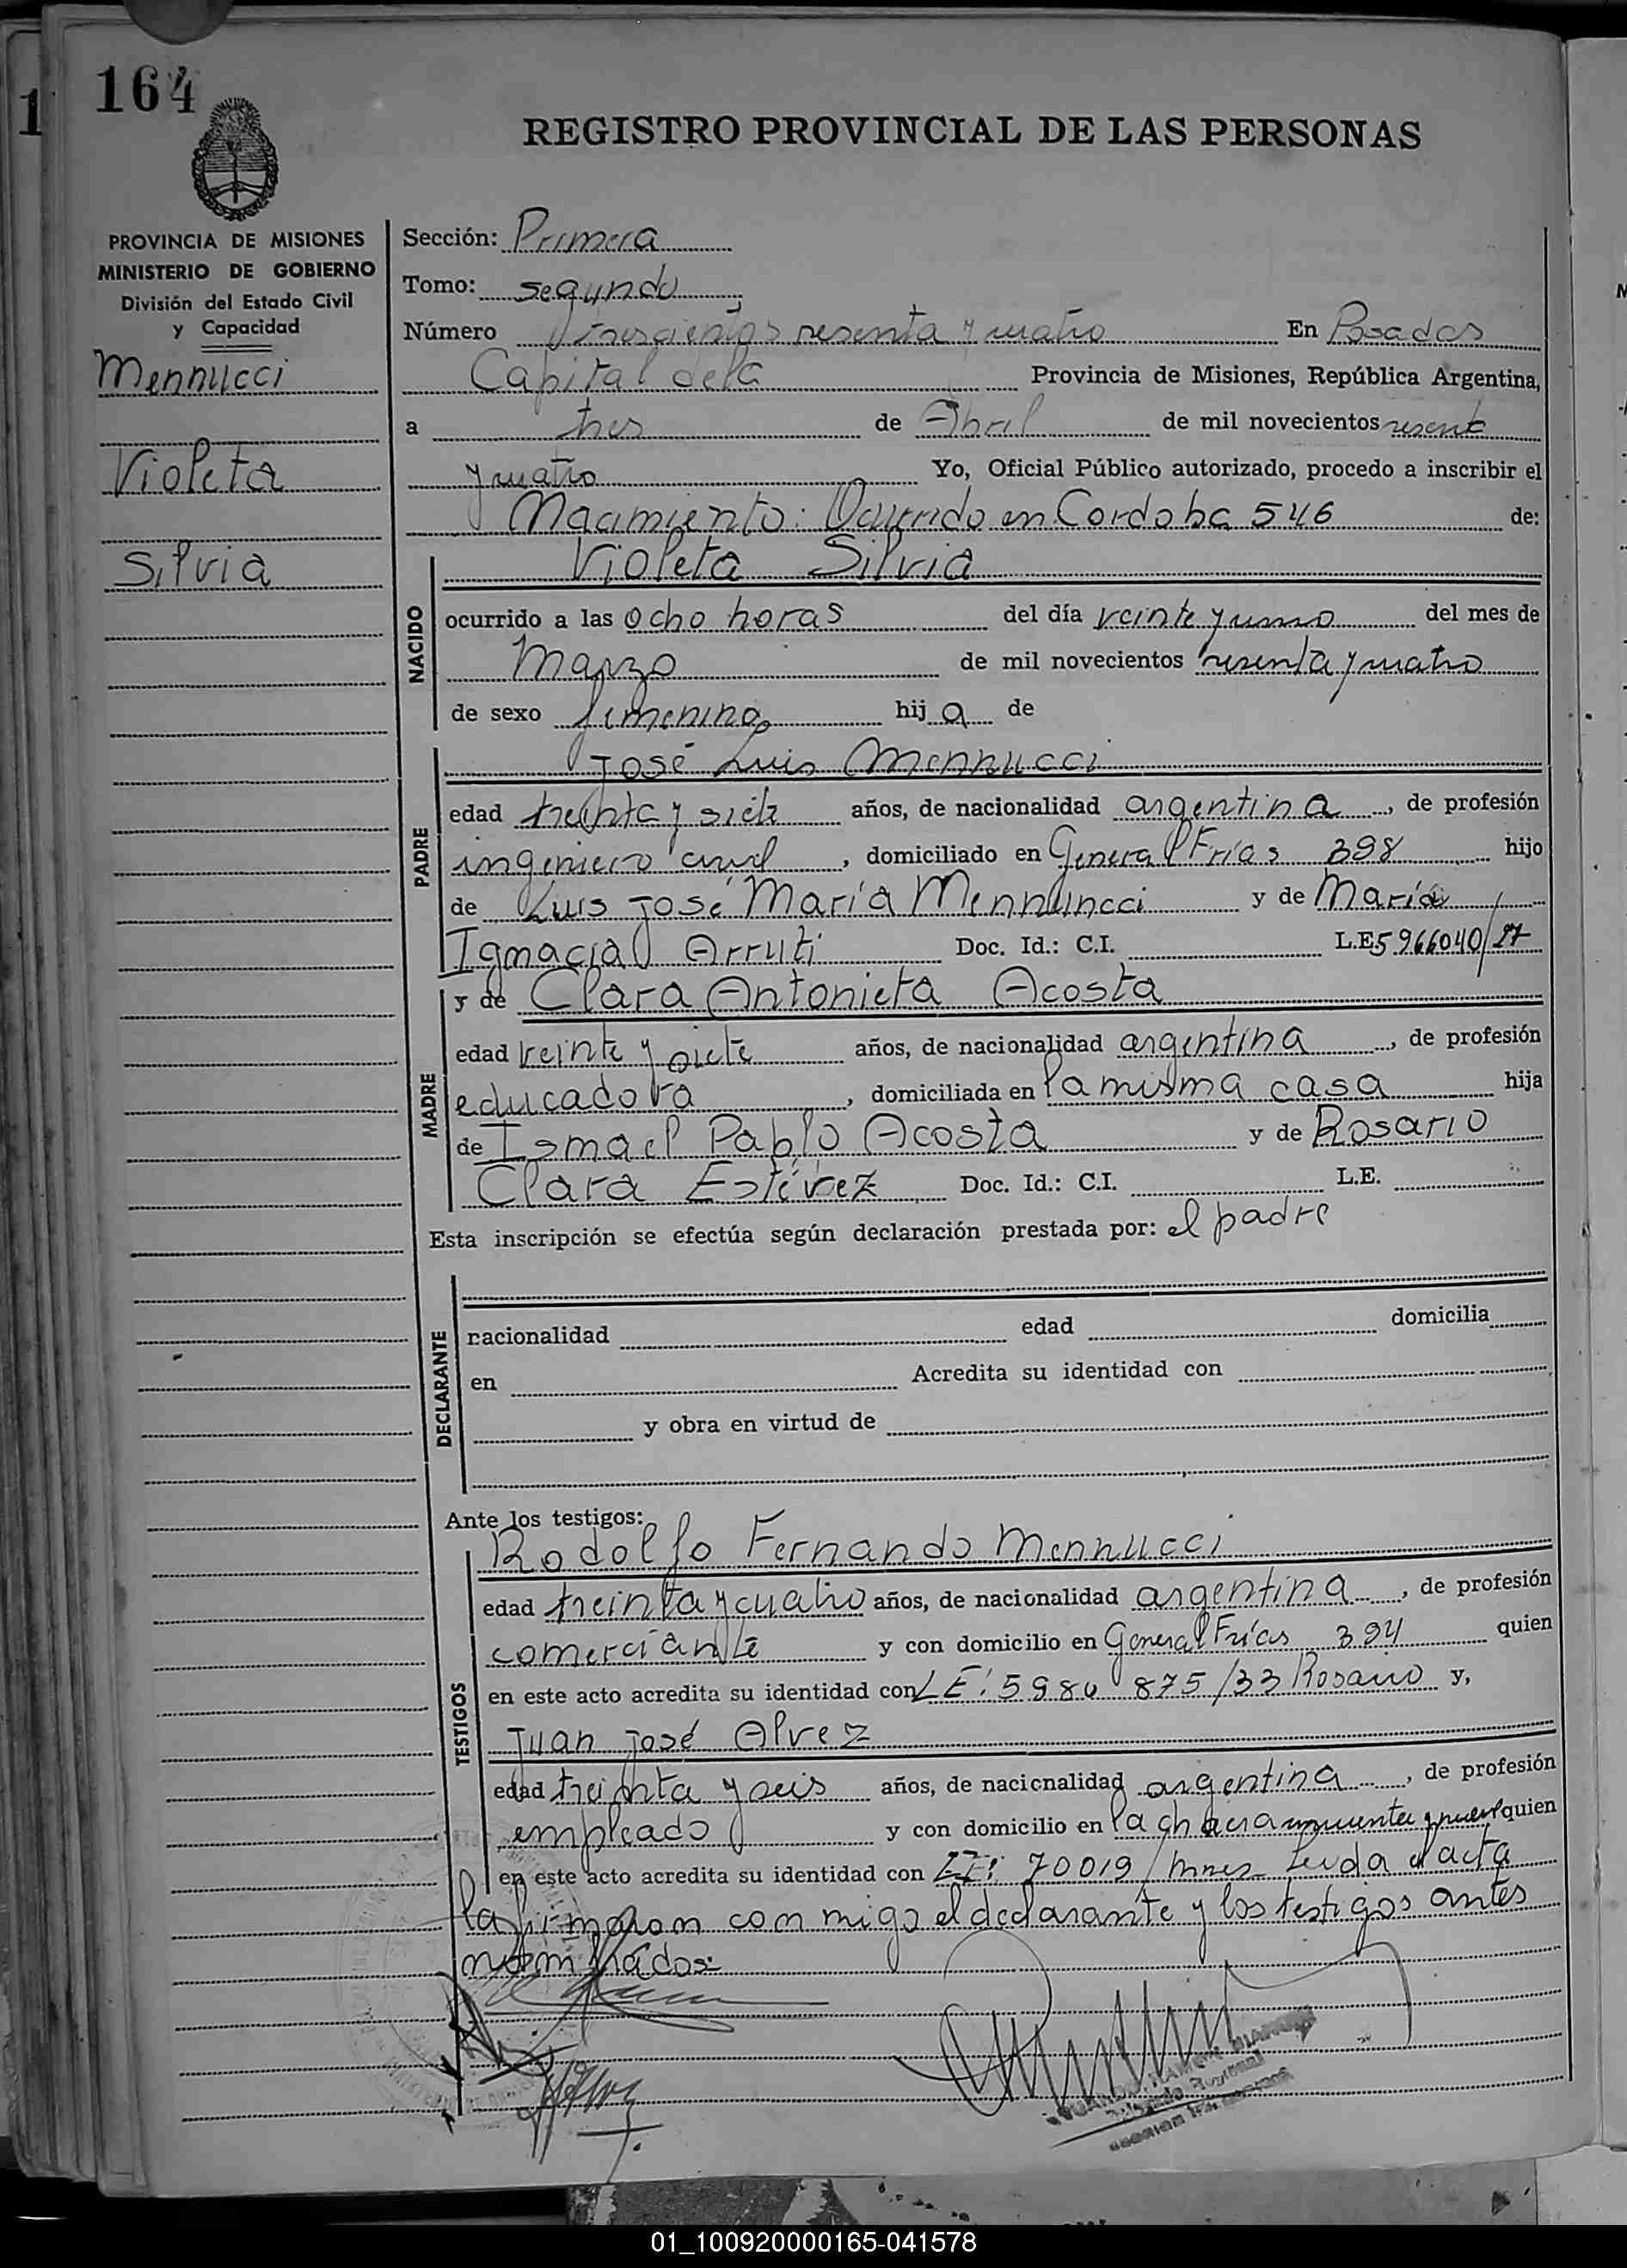 164
REGISTRO PROVINCIAL DE LAS PERSONAS
PROVINCIA DE MISIONES
MINISTERIO DE GOBIERNO
División del Estado Civil
y Capacidad
Mennucci
Violeta
Silvia
Sección: Primera
Tomo: segundo
Número sesenta y cuatro En Posadas
Capital de la Provincia de Misiones, República Argentina,
a tres de Abril de mil novecientos sesenta
y cuatro Yo, Oficial Público autorizado, procedo a inscribir el
Nacimiento: Ocurrido en Cordoba 546 de:
Violeta Silvia
NACIDO
ocurrido a las ocho horas del día veinte y uno del mes de
Marzo de mil novecientos sesenta y cuatro
de sexo femenino hij a de
PADRE
José Luis Mennucci
edad treinta y siete años, de nacionalidad argentina, de profesión
ingeniero civil, domiciliado en General Frías 398 hijo
de Luis José María Mennuncci y de María
Ignacia Arruti Doc. Id.: C.I. L.E 5966040/27
MADRE
y de Clara Antonieta Acosta
edad veinte y siete años, de nacionalidad argentina, de profesión
educadora, domiciliada en la misma casa hija
de Ismael Pablo Acosta y de Rosario
Clara Estévez Doc. Id.: C.I. L.E.
Esta inscripción se efectúa según declaración prestada por: el padre
DECLARANTE
racionalidad edad domicilia
en Acredita su identidad con
y obra en virtud de
Ante los testigos:
TESTIGOS
Rodolfo Fernando Mennucci
edad treinta y cuatro años, de nacionalidad argentina, de profesión
comerciante y con domicilio en General Frías 394 quien
en este acto acredita su identidad con LE: 875/33 Rosario y,
Juan José Alvez
edad treinta y seis años, de nacicnalidad argentina, de profesión
empleado y con domicilio en la chacra quien
en este acto acredita su identidad con 70019/ Leida el acta
la firmaron con migo el declarante y los testigos antes
nominados:
01_100920000165-041578